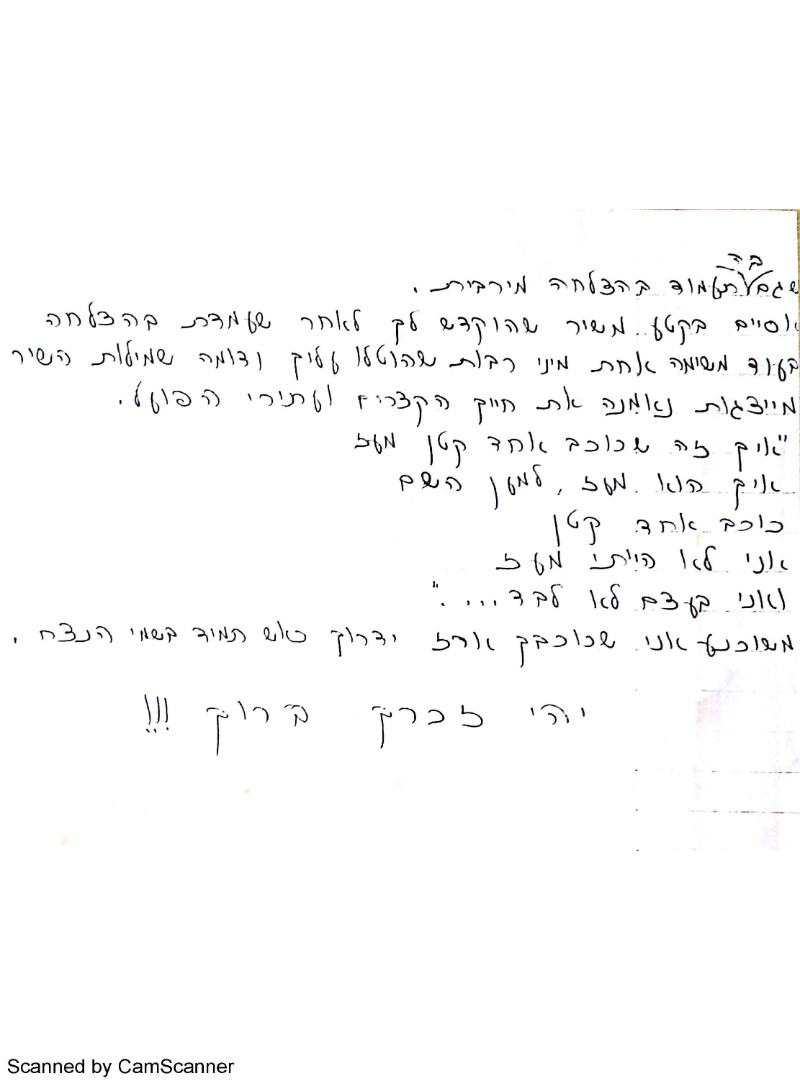 שגם בה תעמוד בהצלחה מירבית.
אסיים בקטע משיר שהוקדש לך לאחר שעמדת בהצלחה
בעוד משימה אחת מיני רבות שהוטלו עליך ודומה שמילות השיר
מייצגות נאמנה את חייך הקצרים ועתירי הפועל.
"איך זה שכוכב אחד קטן מעז
איך הוא מעז, למען השם
כוכב אחד קטן
אני לא הייתי מעז
ואני בעצם לא לבד...."
משוכנע אני שכוכבך ארז ידרוך כאש תמיד בשמי הנצח.
יהי זכרך ברוך !!!
Scanned by CamScanner